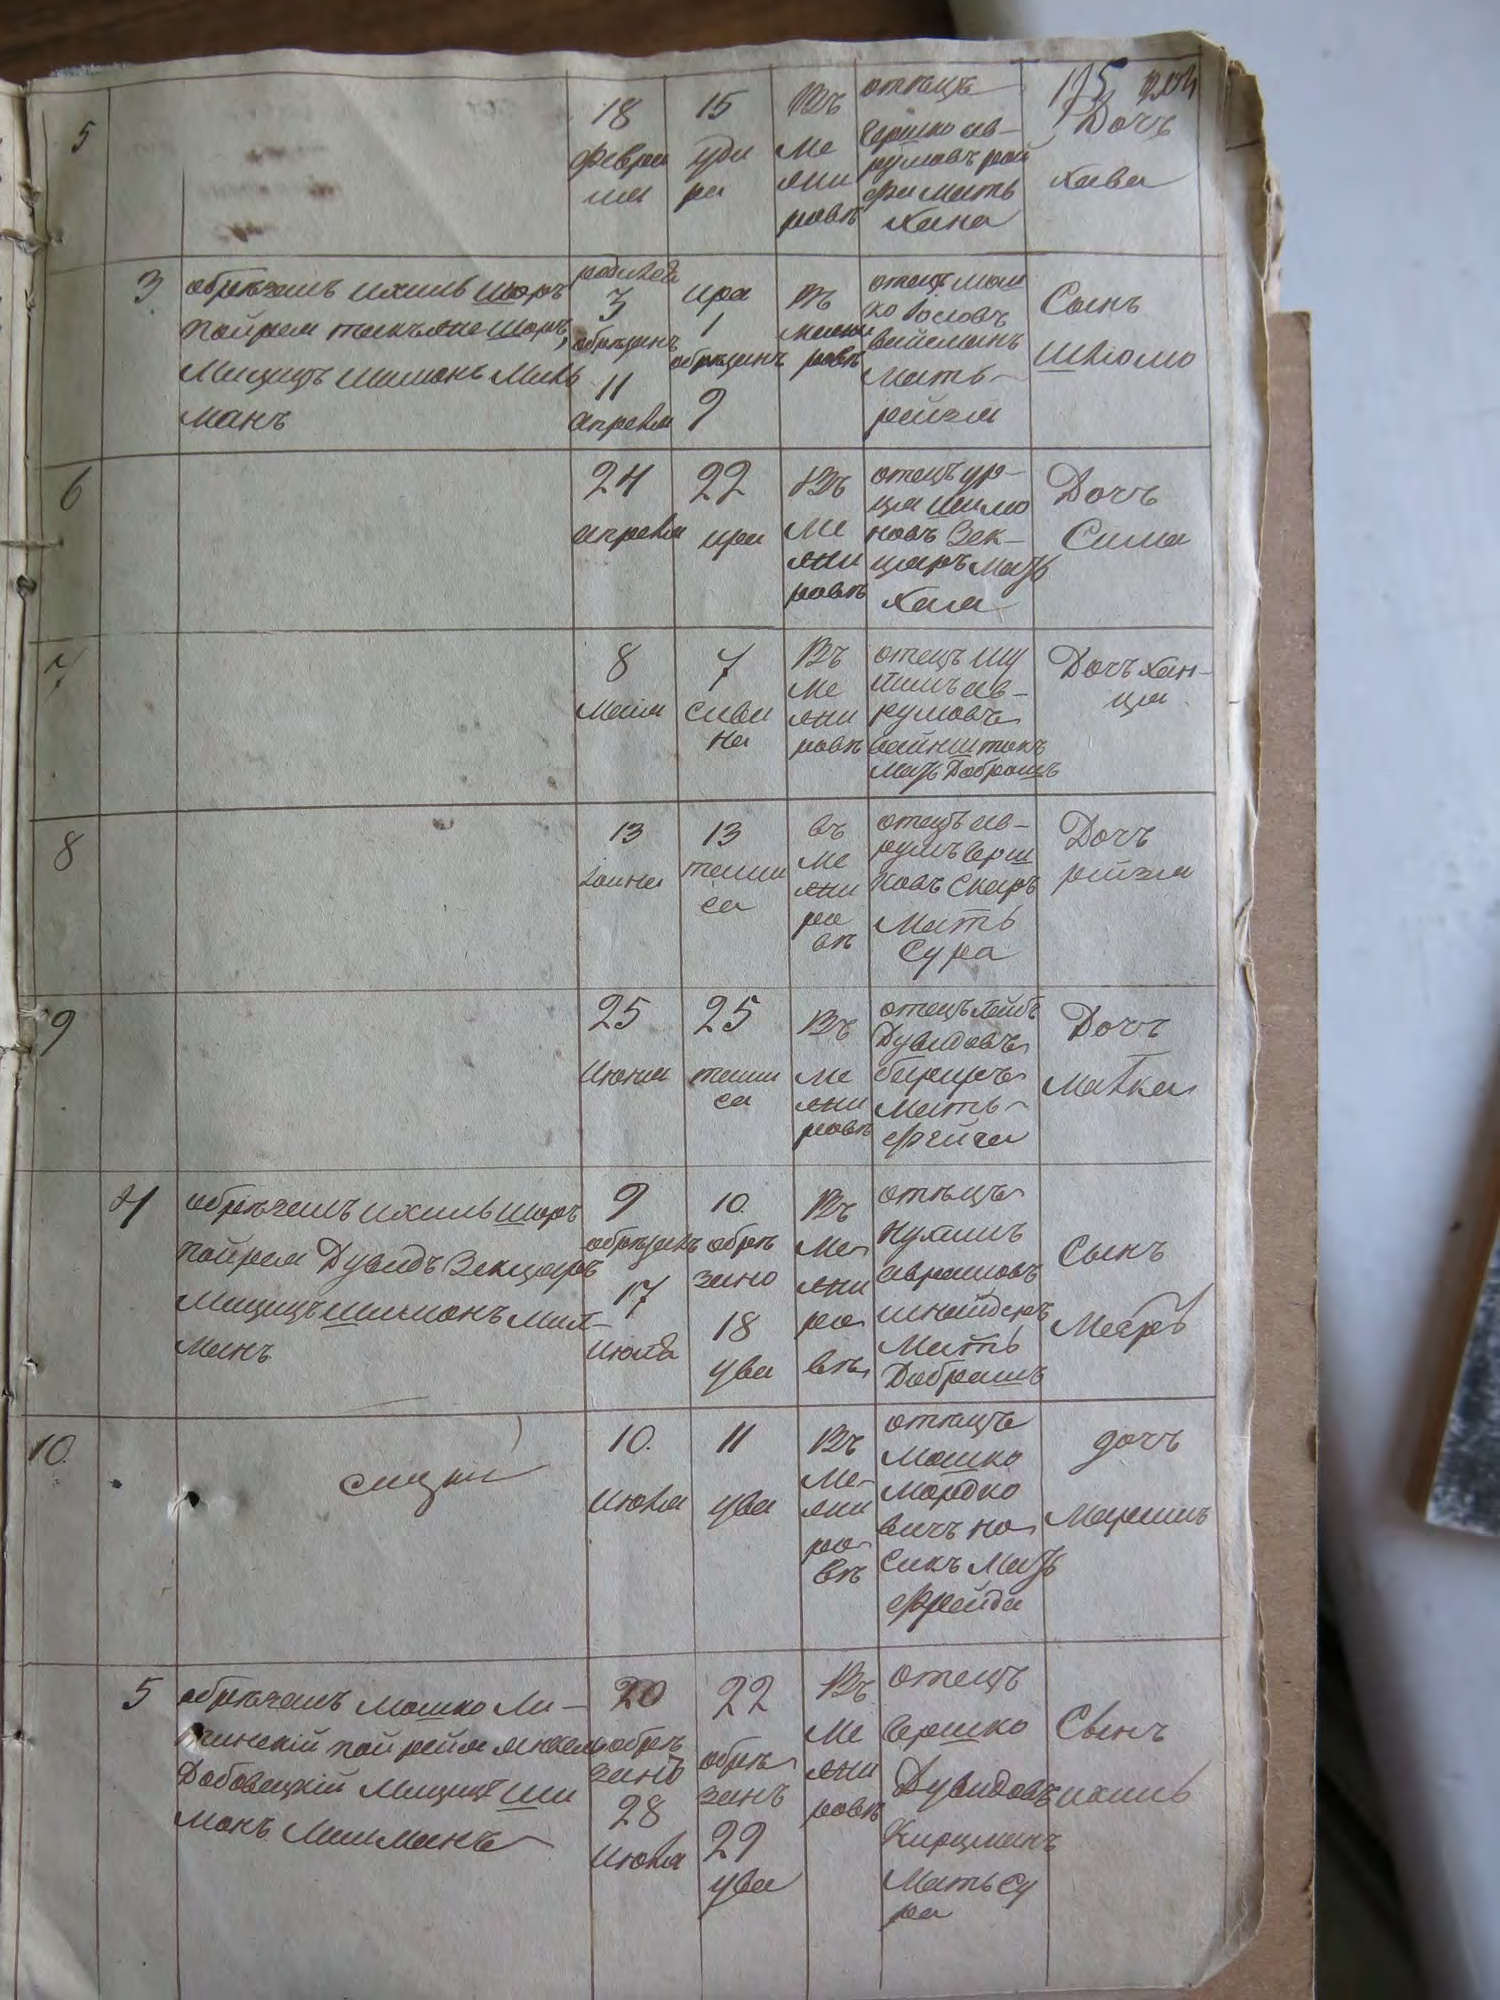 175
5
18
февра
ля
15
уда
ра
Въ
Ме
жи
ровѣ
отецъ
Гершко ав-
румовъ рай
фа мать
Хана
Дочь
Хава
3
обрѣзалъ ихилъ Шоръ
пойрем
Шоръ,
Мицицъ Шимонъ Миль
манъ
родился
3
обрѣзанъ
11
апреля
ира
1
обрѣзанъ
9
Въ
ровѣ
отецъ мош
ко Іословъ
вайсманъ
Мать
рейзя
Сынъ
Шліомо
6
24
апреля
22
ира
Въ
Ме
жи
ровѣ
отецъ ур-
ця шимо
новъ Зек-
царъ Мать
Хая
Дочь
Сима
7
8
Маія
7
сива
на
Въ
Ме
жи
ровѣ
отецъ Шу
лимъ ав-
румовъ
вайнштокъ
Мать Добрашъ
Дочь Хан-
ця
8
13
Іюня
13
тами
са
въ
Ме
жи
ро
вѣ
отецъ ав-
румъ Герш
ковъ Скаръ
Мать
Сура
Дочь
рейзя
9
25
Июня
25
тами
са
Въ
Ме
жи
ровѣ
отецъ Лейбъ
Дувидовъ
Мать
Фейга
Дочь
Матка
4
обрѣзалъ ихилъ Шоръ
пойрем Дувидъ Зекцеръ
Мицицъ Шимонъ Мил-
манъ
9
обрѣзанъ
17
Июля
10.
обрѣ
зано
18
ува
Въ
Ме
жи
ро
вѣ
отецъ
Нухимъ
аврамовъ
шнайдеръ
Мать
Добрашъ
Сынъ
Мееръ
10.
10.
Июля
11
ува
Въ
Ме
жи
ро
вѣ
отецъ
Мошко
Мордко
вичъ но
сикъ Мать
Фрейда
дочь
Маримъ
5
обрѣзалъ Мошко Ли-
тинскій пойрейм
Добовецкій Мицицъ Ши
монъ Милманъ
20
обрѣ
занъ
28
Июля
22
обрѣ
занъ
29
ува
Въ
Ме
жи
ровѣ
отецъ
Гершко
Дувидовъ
Кирцманъ
Мать Су
ра
Сынъ
ихилъ